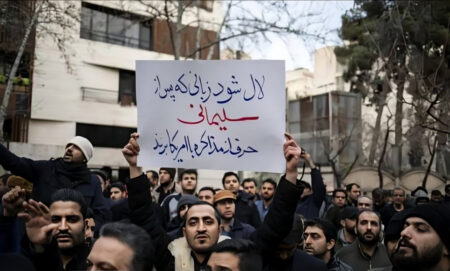 لال شود زبانی که پس از
سلیمانی
حرف از مذاکره با امریکا بزند